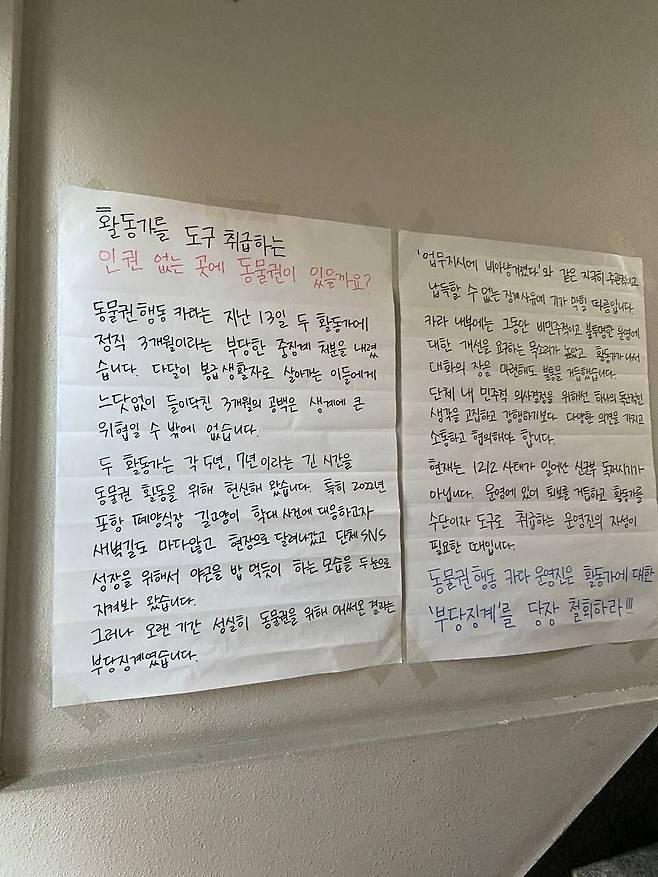 활동가를 도구 취급하는
인권 없는 곳에 동물권이 있을까요?
동물권행동 카라는 지난 13일 두 활동가에
정직 3개월이라는 부당한 중징계 처분을 내렸
습니다. 다달이 봉급생활자로 살아가는 이들에게
느닷없이 들이닥친 3개월의 공백은 생계에 큰
위협일 수 밖에 없습니다.
두 활동가는 각 5년, 7년이라는 긴 시간을
동물권 활동을 위해 헌신해 왔습니다. 특히 2022년
포항 폐양식장 길고양이 학대 사건에 대응하고자
새벽길도 마다않고 현장으로 달려나갔고 단체 SNS
성장을 위해서 야근을 밥 먹듯이 하는 모습을 두눈으로
지켜봐 왔습니다.
그러나 오랜 기간 성실히 동물권을 위해 애써온 결과는
부당징계였습니다.
'업무지시에 비아냥거렸다'와 같은 지극히 주관적이고
납득할 수 없는 징계사유에 기가 막힐 따름입니다.
카라 내부에는 그동안 비민주적이고 불투명한 운영에
대한 개선을 요하는 목소리가 높았고 활동가 나서
대화의 장을 마련해도 불통을 거듭했습니다.
단체 내 민주적 의사결정을 위해선 하나의 독단적인
생각을 고집하고 강행하기보다 다양한 의견을 가지고
소통하고 협의해야 합니다.
현재는 1212 사태가 일어난 신군부 독재시기가
아닙니다. 운영에 있어 퇴보를 거듭하고 활동가를
수단이자 도구로 취급하는 운영진의 자성이
필요한 때입니다.
동물권행동 카라 운영진은 활동가에 대한
'부당징계'를 당장 철회하라!!!